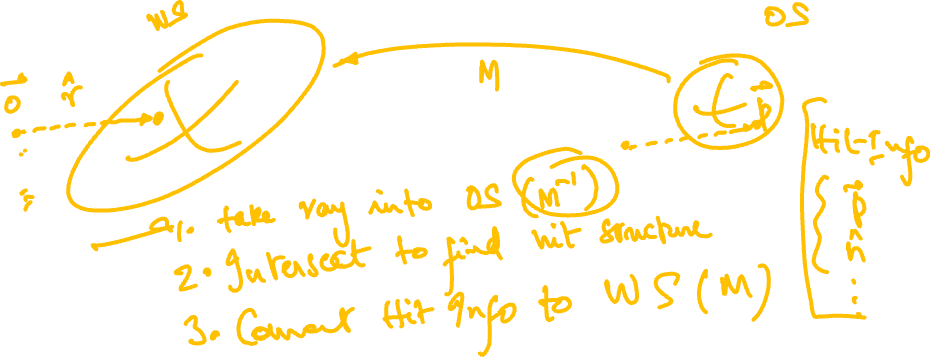 WS
OS
o r̂
M
p
Hit-Info
1. take ray into OS (M⁻¹)
p
2. Intersect to find hit structure
n̂
3. Convert Hit Info to WS (M)